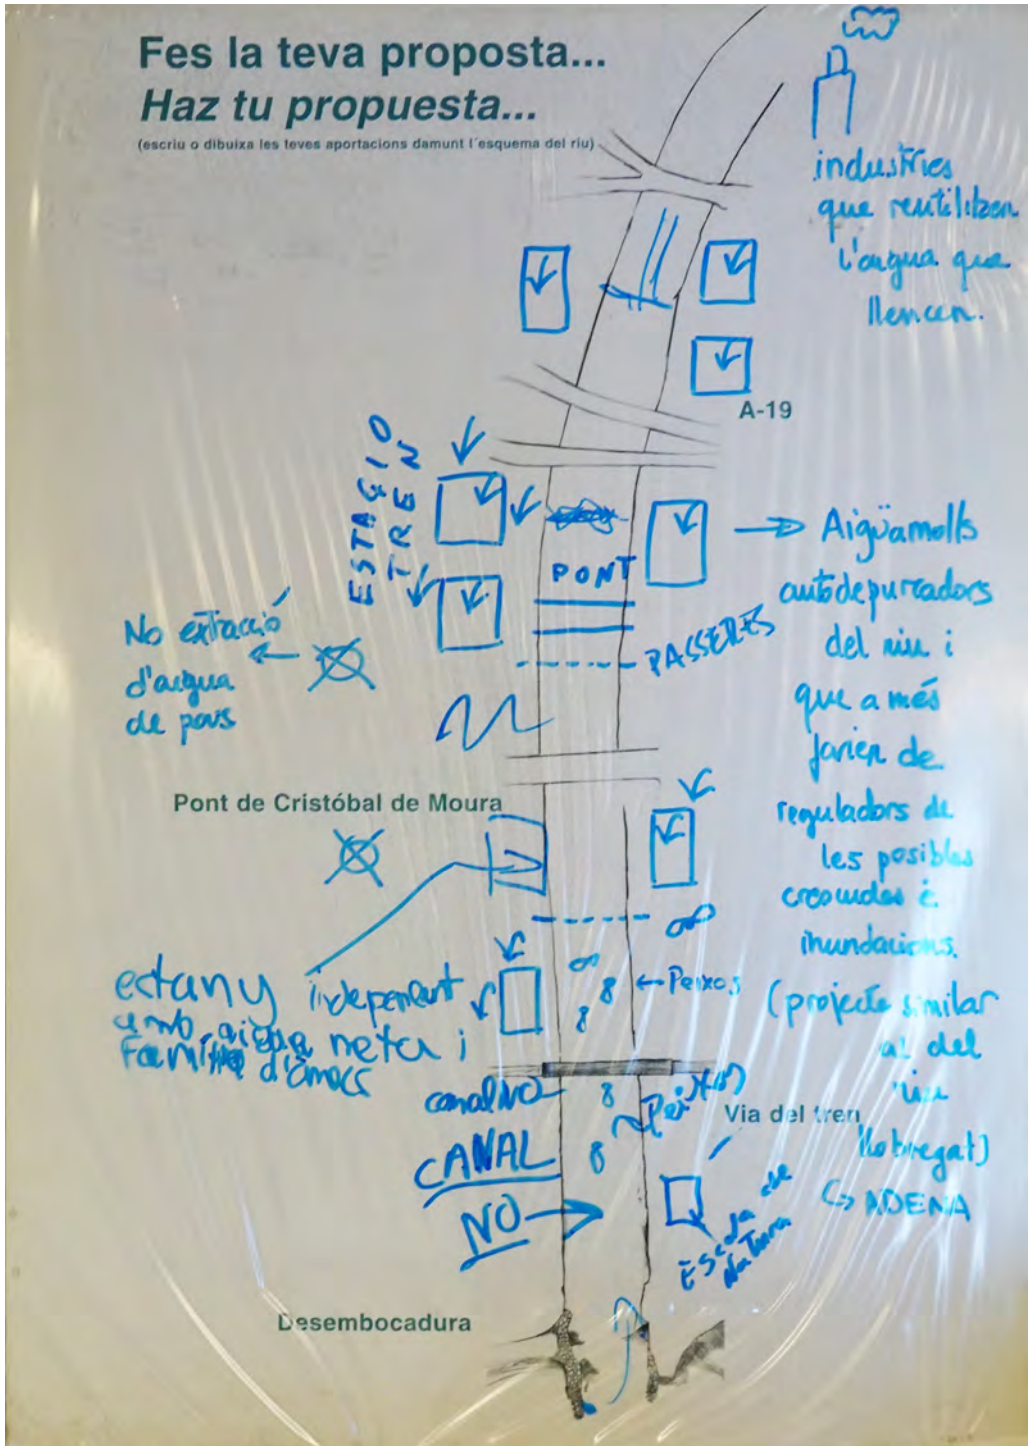 Fes la teva proposta...
Haz tu propuesta...
(escriu o dibuixa les teves aportacions damunt l'esquema del riu)
industries
que reutilitzen
l'aigua que
llencen.
A-19
ESTACIO
TREN
PONT
PASSERES
No extracció
d'aigua
de pous
Aigüamolls
autodepuradors
del riu i
que a més
farien de
reguladors de
les posibles
crescudes i
inundacions.
(projecte similar
al del
riu
llobregat)
ADENA
Pont de Cristóbal de Moura
estany independent
amb aigua neta i
família d'ànecs
Peixos
canal NO
Peixos
Via del tren
CANAL
NO
Escola de
Natura
Desembocadura